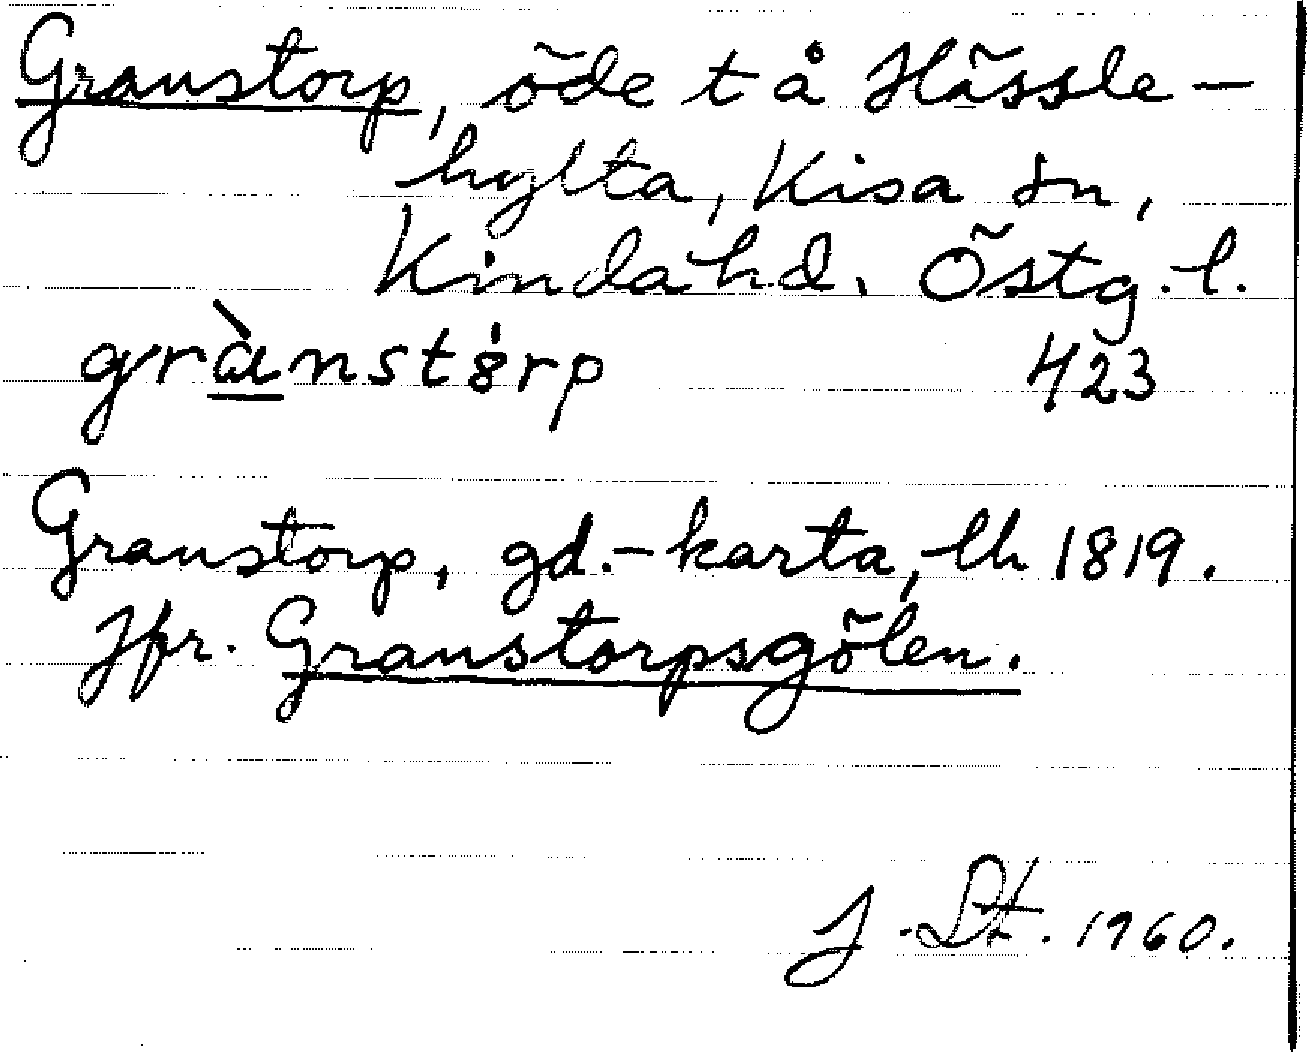 Granstorp, öde t å Hässle-
hylta, Kisa sn,
Kinda hd. Östg. l.
grànstơrp 423
Granstorp, gd.-karta, lh 1819.
Jfr. Granstorpsgölen.
J. Lt. 1960.